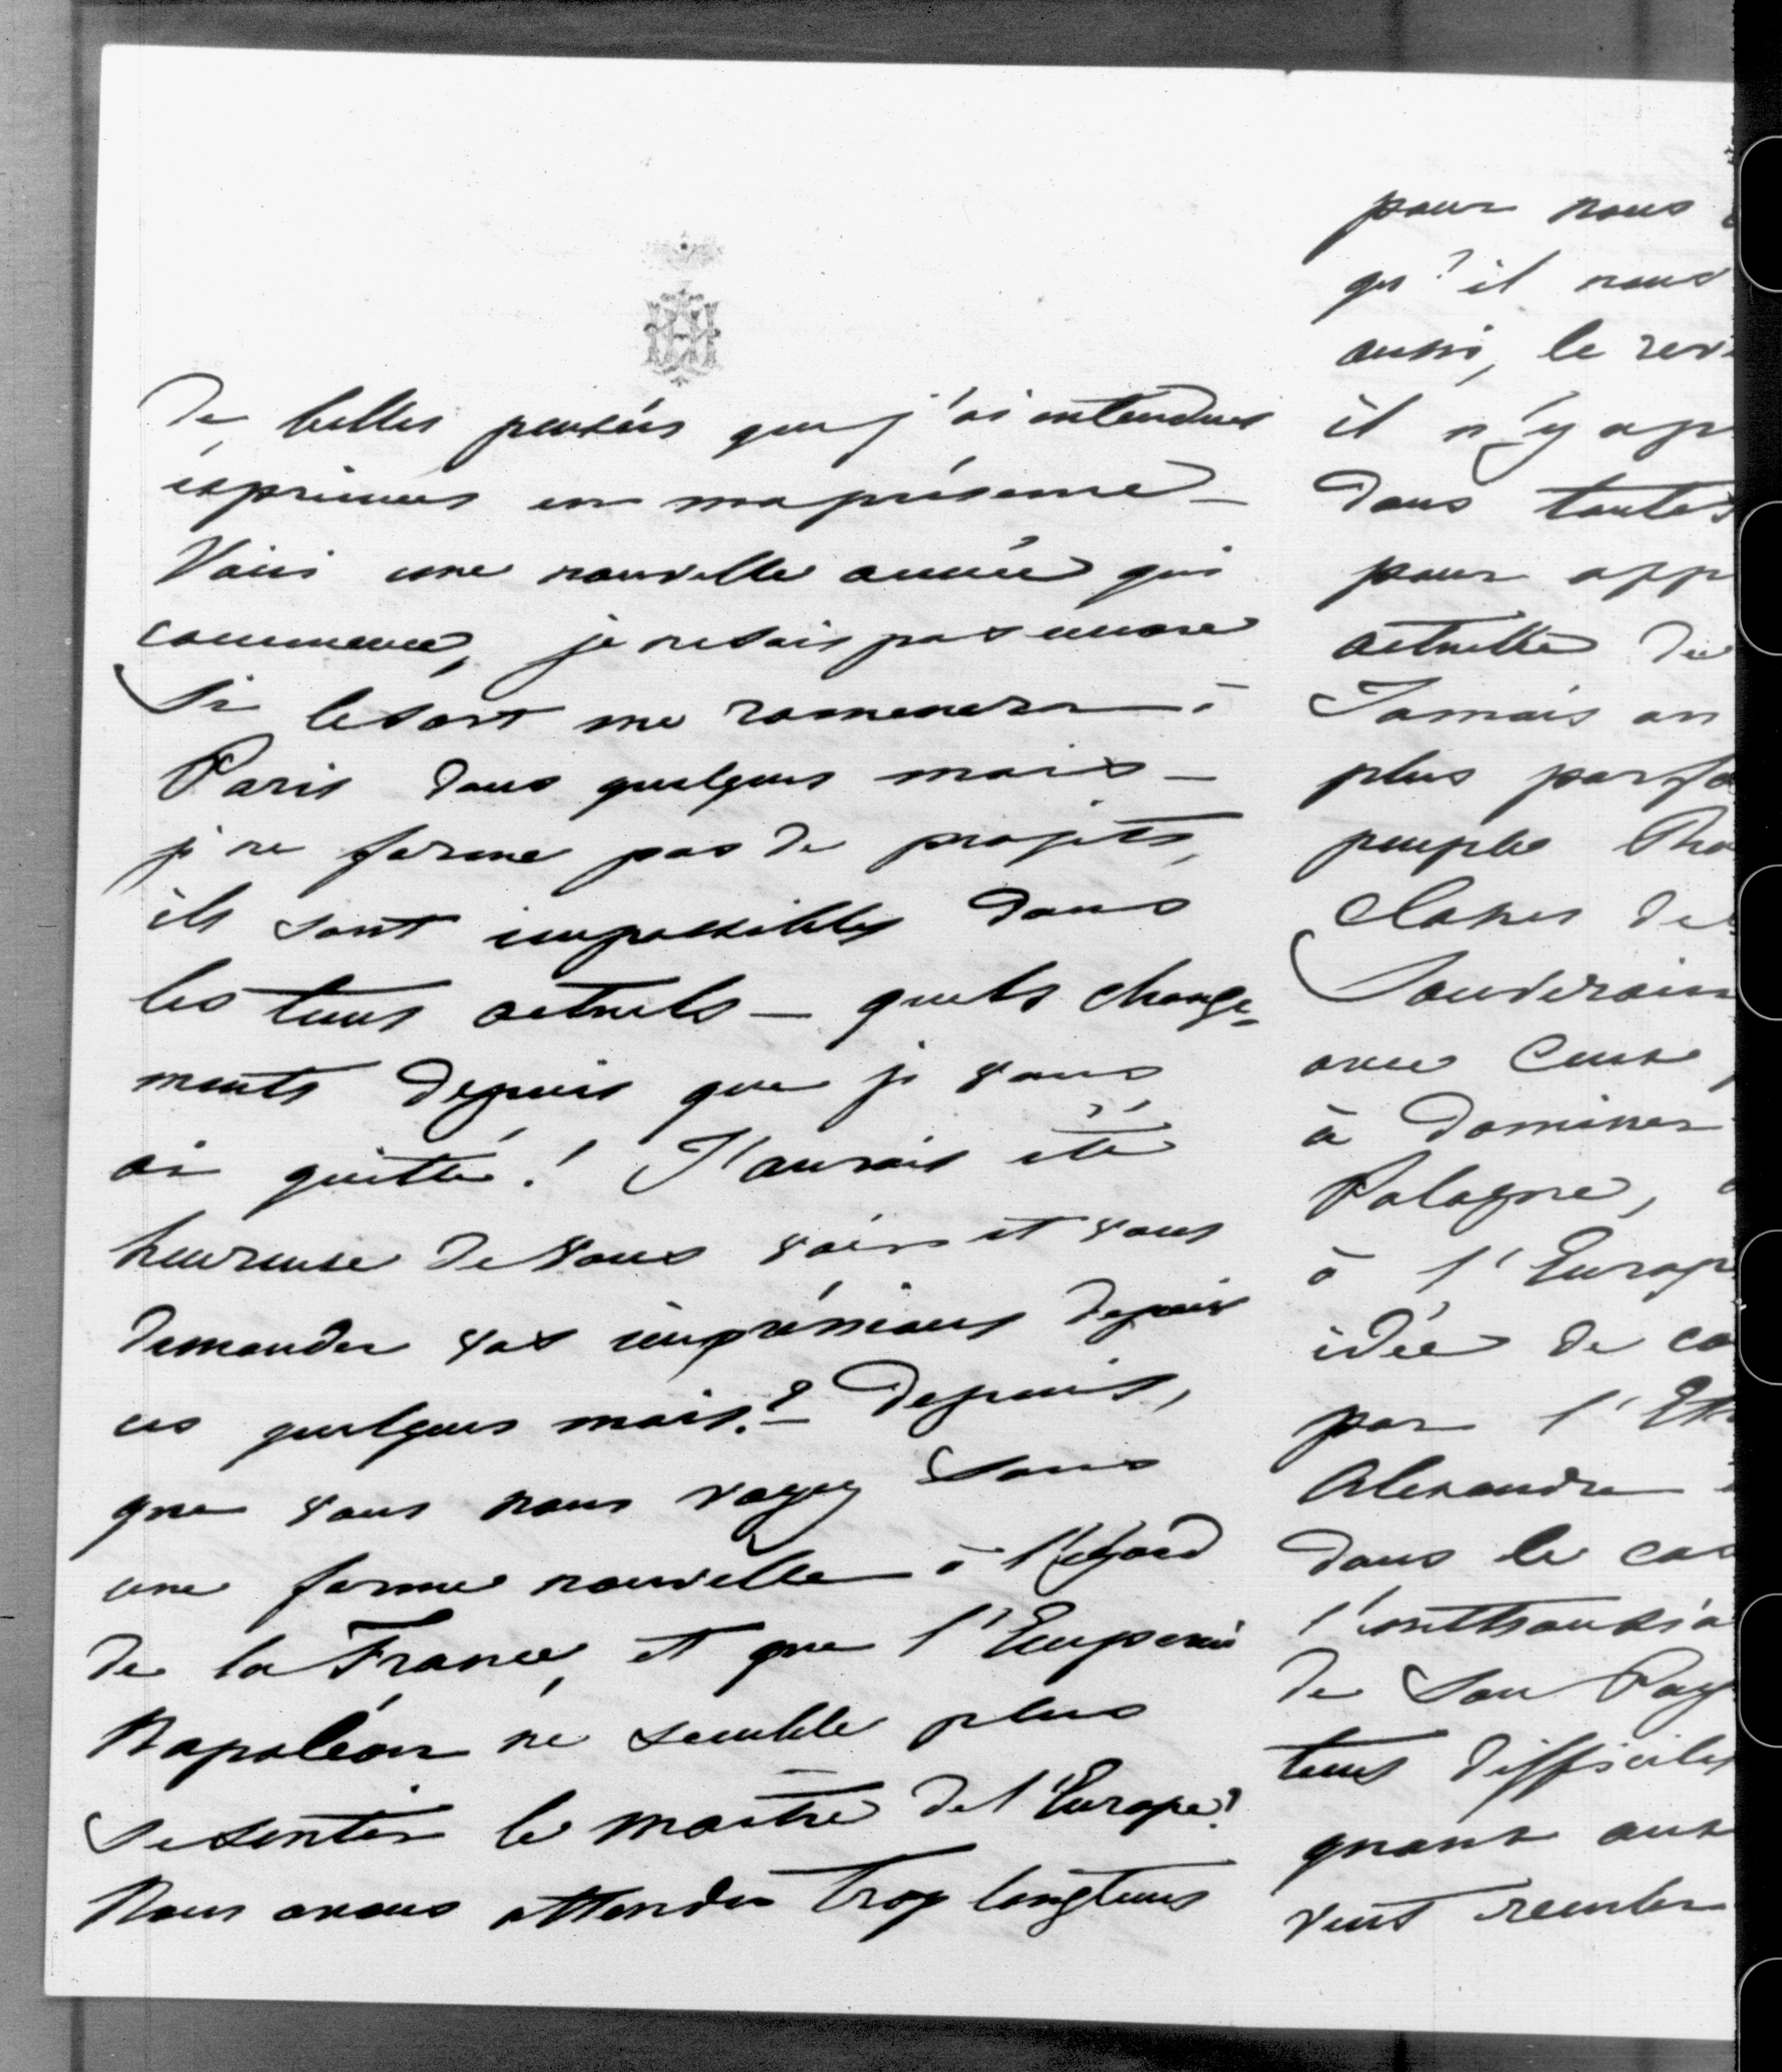 de belles pensées que j'ai entendues
éxprimées en ma présence _
Voici une nouvelle année qui
commence, je ne sais pas encore
Si le sort me ramenera à
Paris dans quelques mois _
je ne forme pas de projets,
ils sont impossibles dans
les tems actuels _ quels change-
ments depuis que je vous
ai quitté! J'aurais été
heureuse de vous voir et vous
demander vos impréssions depuis
ces quelques mois? _ Depuis,
que vous nous voyez sous
une forme nouvelle à l'égard
de la France, et que l'Empereur
Napoléon ne semble plus
Se sentir le maître de l'Europe?
Nous avons attendu trop longtems
pour nous
qu'il nous
aussi, le
il n'y a
dans toutes
pour
actuelle de
Jamais on
plus
peuple
Classes de
Souverain
avec Ceux
à dominer
Pologne,
à l'Europe
idée de
par l'
Alexandre
dans le
de Son
tems difficiles
quant aux
veut